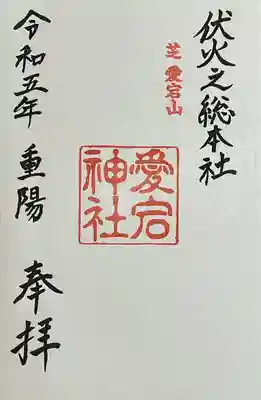 伏火之総本社
芝愛宕山
愛宕
神社
奉拝
令和五年 重陽